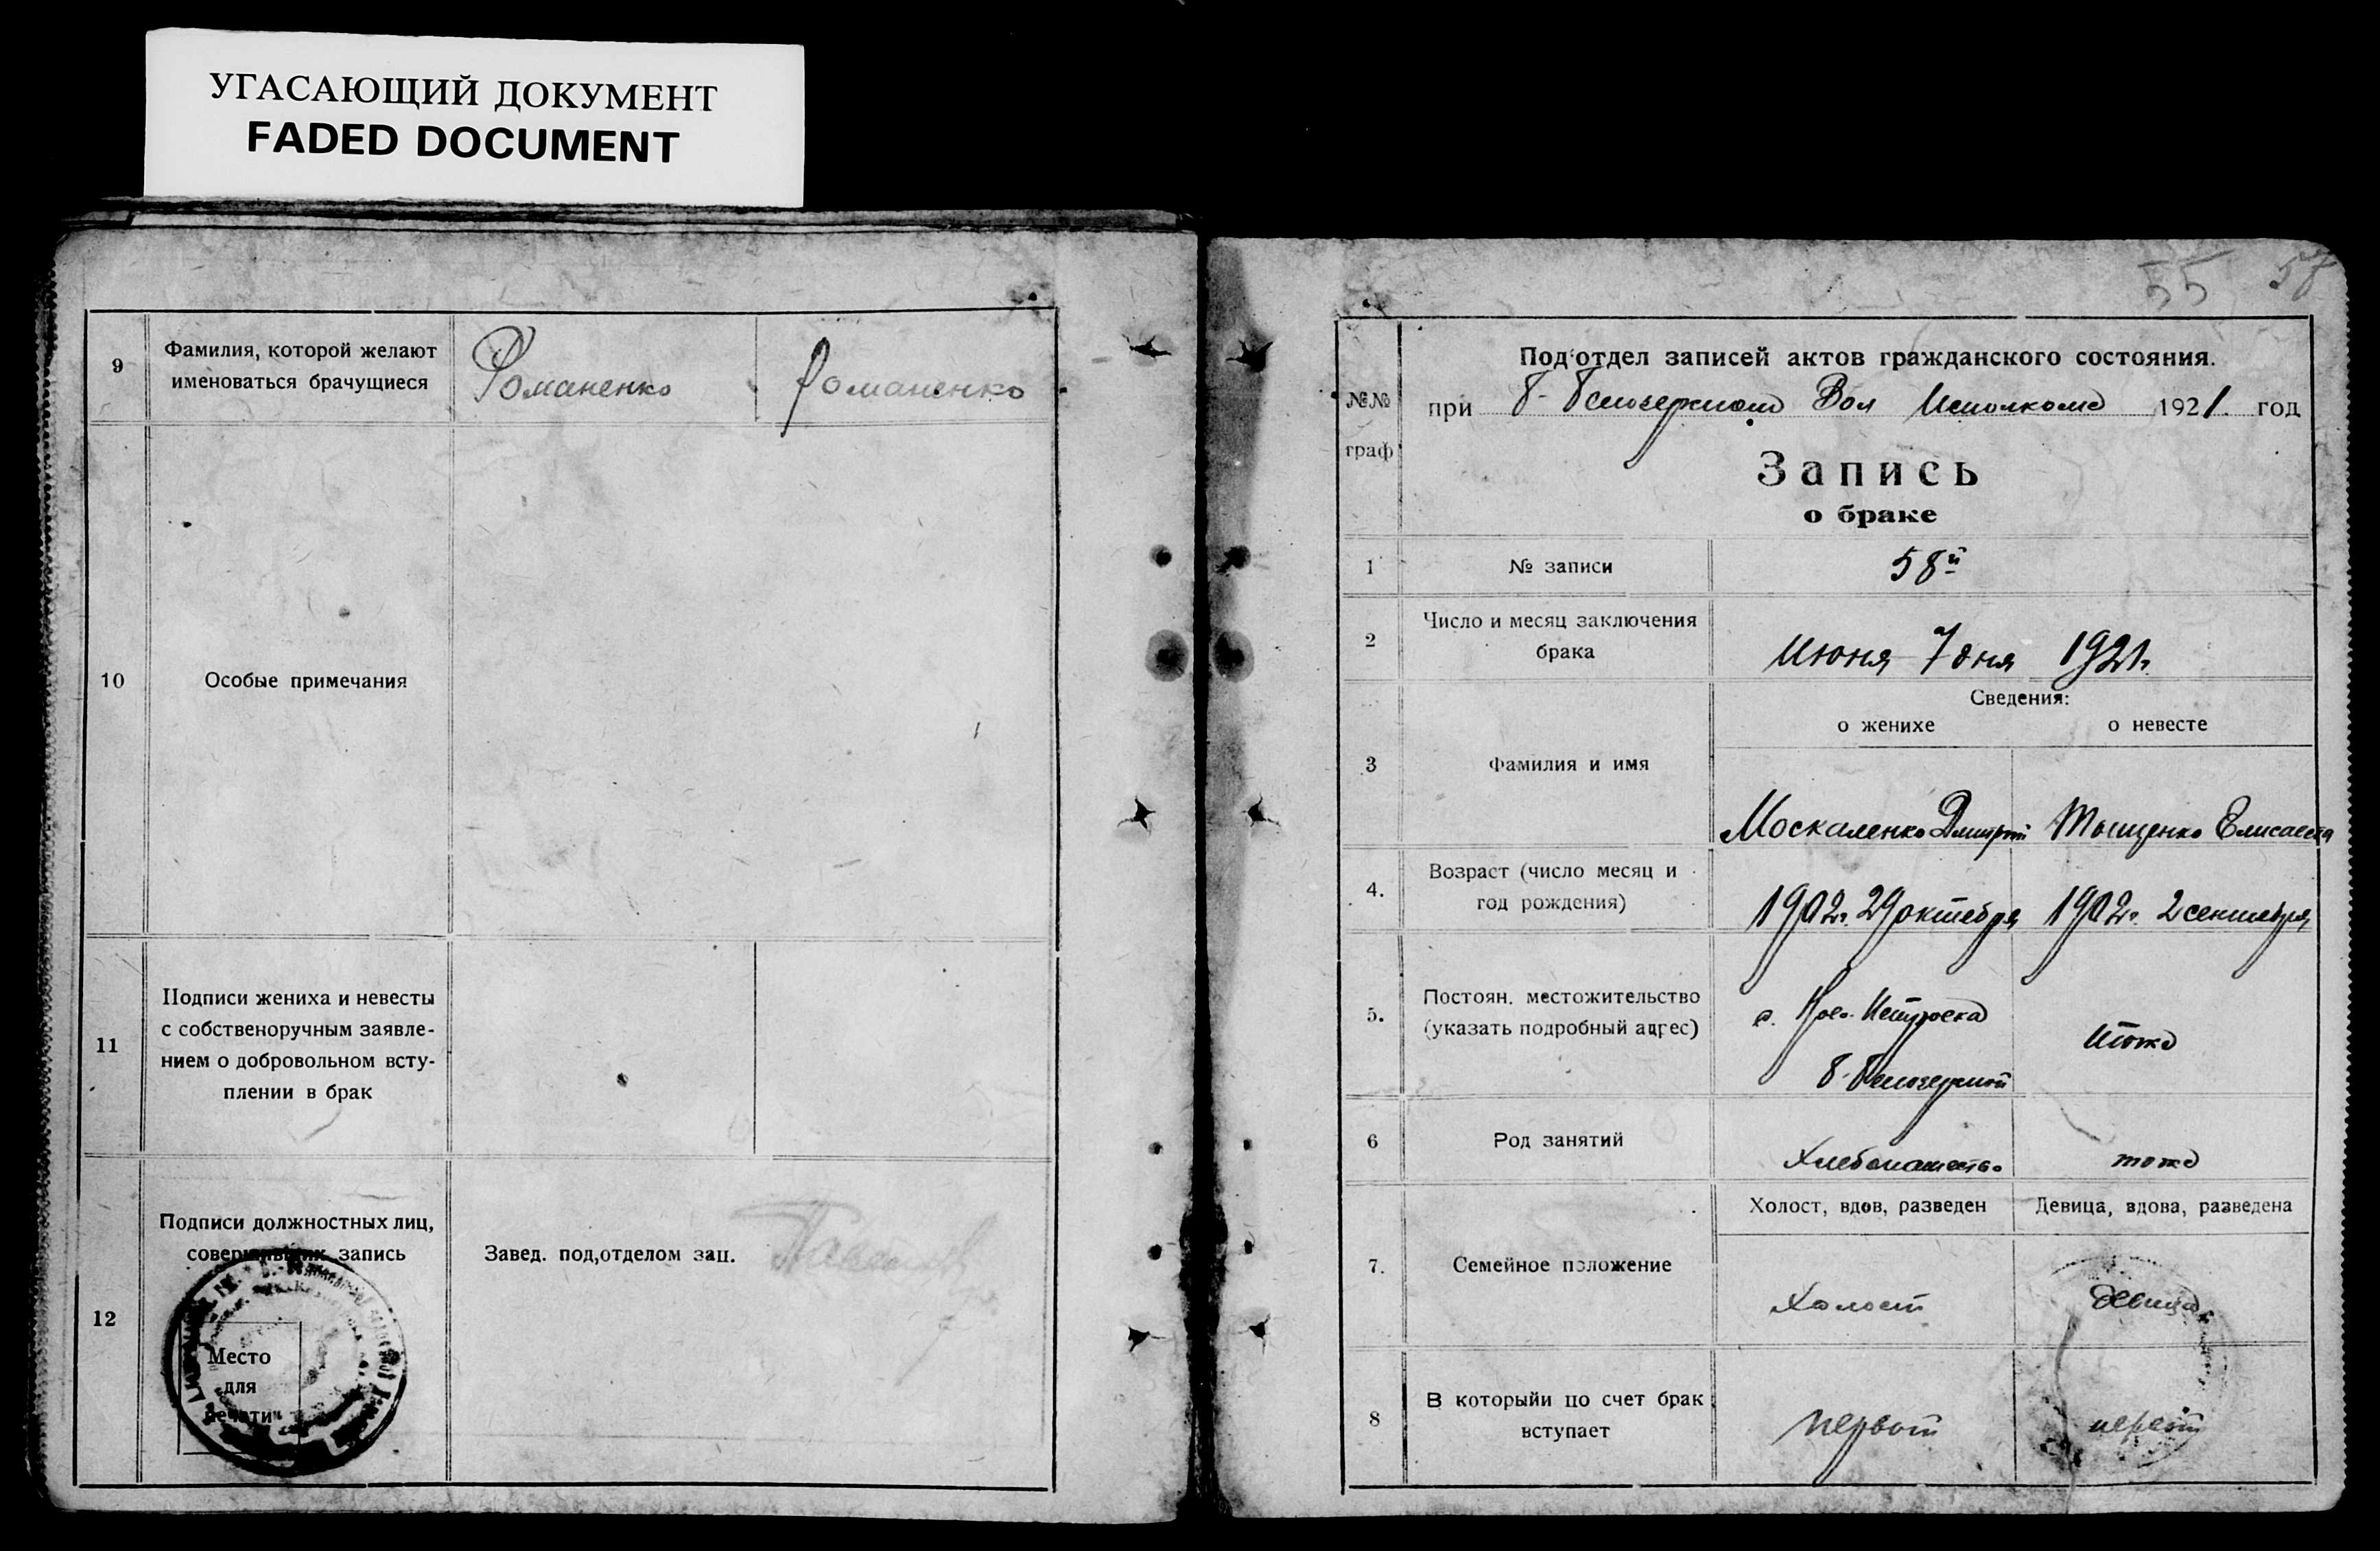 УГАСАЮЩИЙ ДОКУМЕНТ
FADED DOCUMENT
9
Фамилия, которой желают
именоваться брачущиеся
Романенко
Романенко
10
Особые примечания
11
Подписи жениха и невесты
с собственоручным заявле-
нием о добровольном всту-
плении в брак
12
Подписи должностных лиц,
совершивших запись
Завед. под,отделом зап.
Место
для
печати
55 57
№№
граф
Под'отдел записей актов гражданского состояния.
при Б-Белозерском Вол Исполкоме 1921. год
Запись
о браке
1
№ записи
58й
2
Число и месяц заключения
брака
Июня 7 дня 1921г.
Сведения:
о женихе
о невесте
3
Фамилия и имя
Москаленко Дмитрий
Тищенко Елисавета
4.
Возраст (число месяц и
год рождения)
1902г. 29 октября
1902г. 2 сентября
5.
Постоян. местожительство
(указать подробный адрес)
с.
Б-Белозерской
Итоже
6
Род занятий
Хлебопашество
тоже
7.
Семейное положение
Холост, вдов, разведен
Девица, вдова, разведена
Холост
девица
8
В которыйи по счет брак
вступает
первый
первый